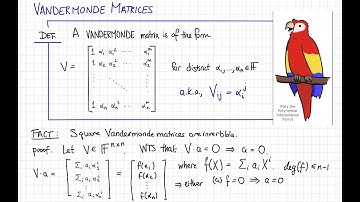 VANDERMONDE MATRICES
DEF. A VANDERMONDE matrix is of the form
V = [ 1 α₁ α₁² ⋯ α₁ᵐ
1 α₂ α₂² ⋯ α₂ᵐ
⋮
1 αₙ αₙ² ⋯ αₙᵐ ]
for distinct α₁,...,αₙ ∈ F
a.k.a, Vᵢⱼ = αᵢʲ
Polly the Polynomial Interpolation Parrot
FACT: Square Vandermonde matrices are invertible.
proof. Let V ∈ Fⁿˣⁿ. WTS that V·a = 0 ⇒ a = 0.
V·a = [ Σᵢ aᵢ α₁ⁱ
Σᵢ aᵢ α₂ⁱ
⋮
Σᵢ aᵢ αₙⁱ ] = [ f(α₁)
f(α₂)
⋮
f(αₙ) ]
where f(X) = Σᵢ aᵢ Xⁱ. deg(f) ≤ n-1
⇒ either (a) f = 0 ⇒ a = 0